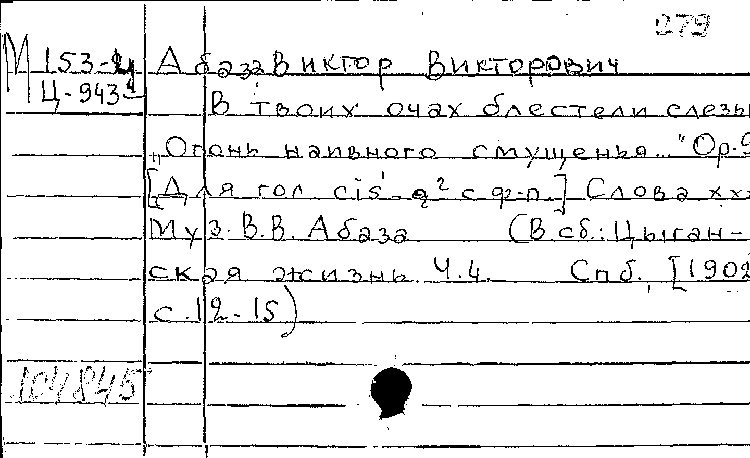 279
М 153-4 Абаза Виктор Викторович
Ц-943 В твоих очах блестели слезы
"Огонь наивного смущенья..." Ор.9
[Для гол. cis¹-g² с ф-п.] Слова ххх
Муз. В.В. Абаза (В сб.: Цыган-
ская жизнь Ч.4. Спб., [1902
с.12-15)
104845